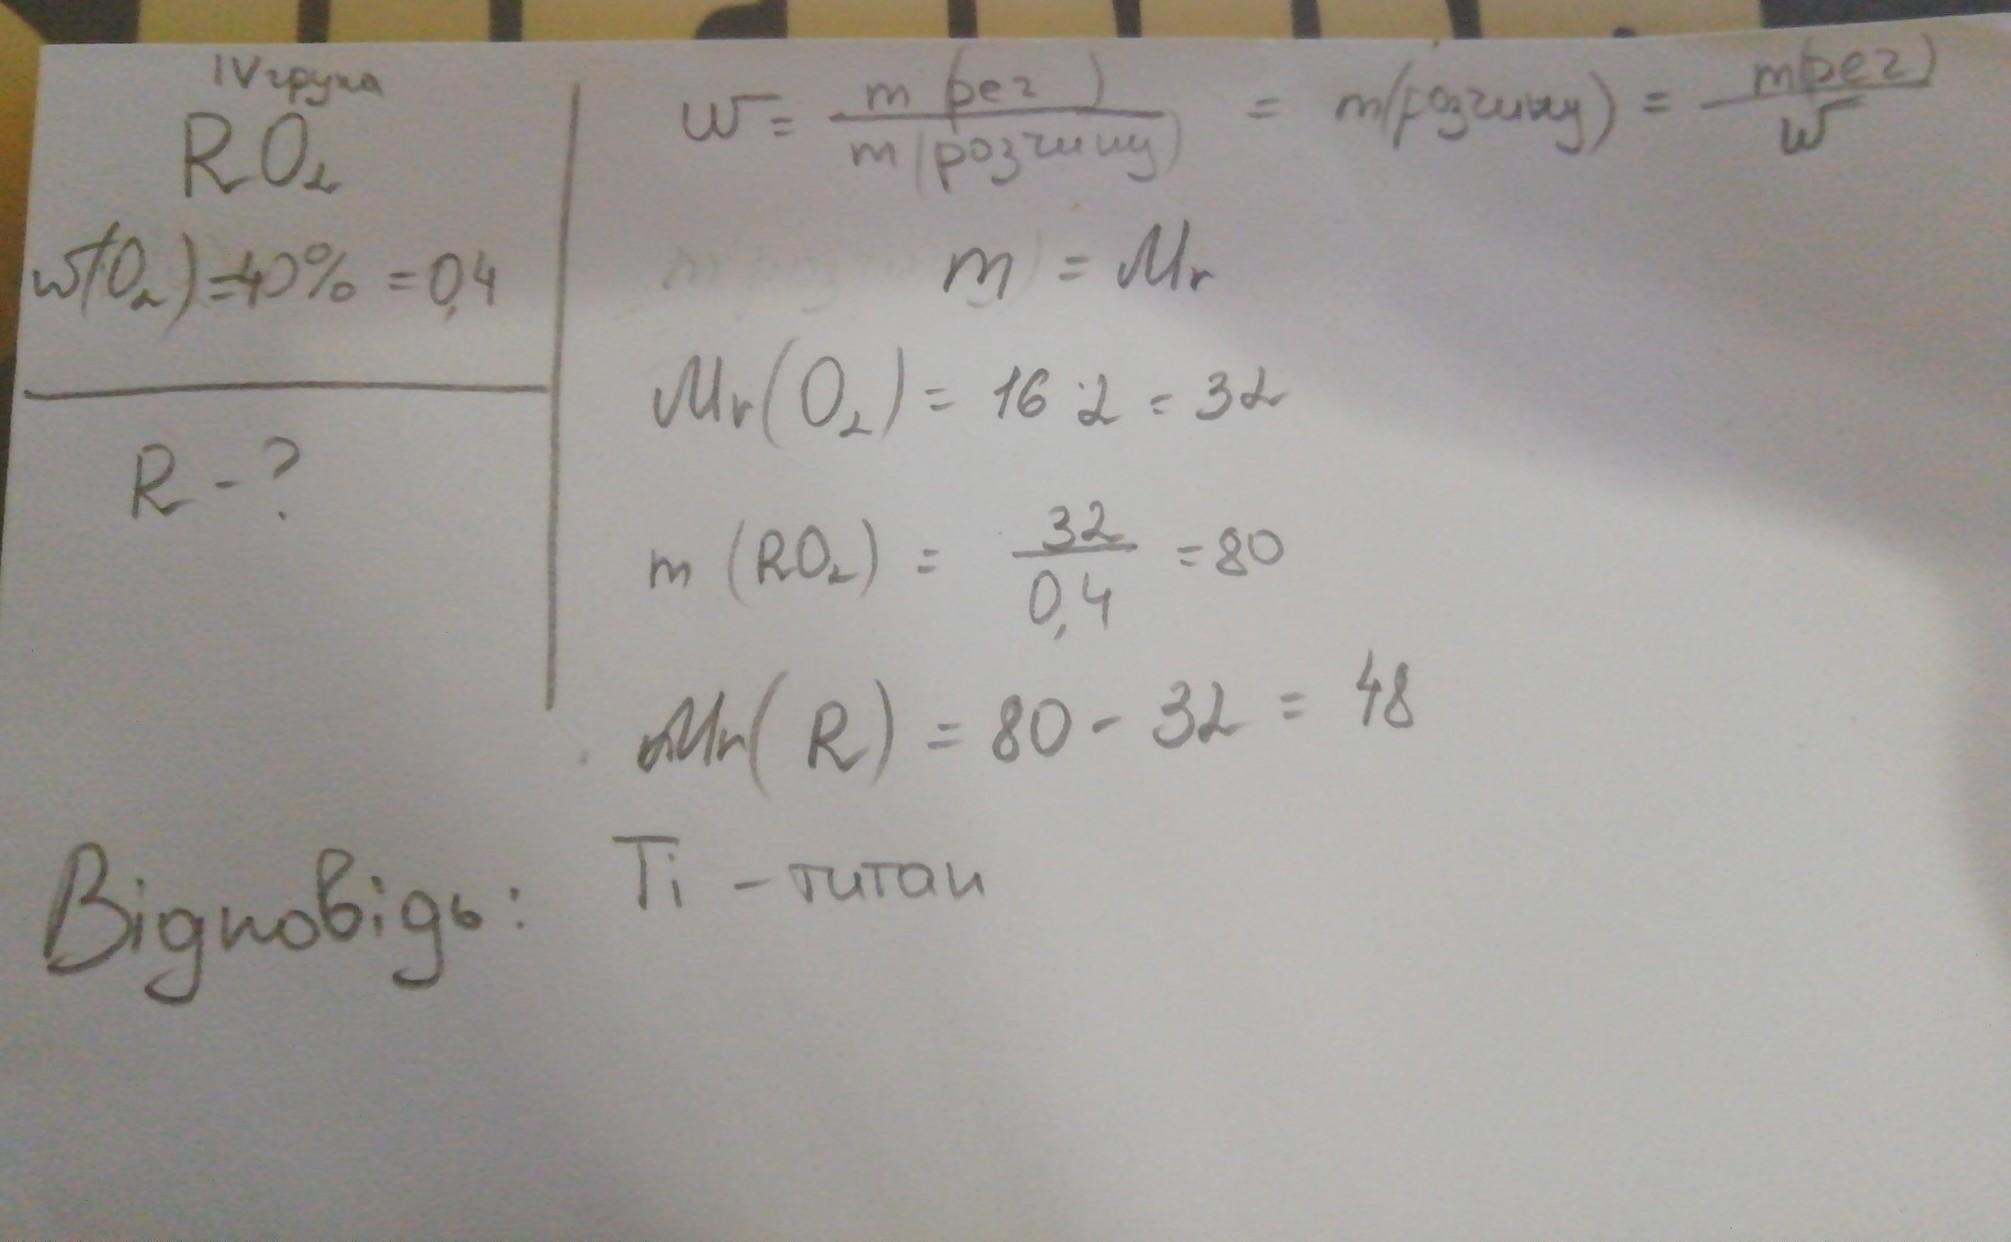 IV група
RO₂
w(O₂) = 40% = 0,4
R - ?
w = m(реч) / m(розчину) = m(розчину) = m(реч) / w
m = Mr
Mr(O₂) = 16·2 = 32
m (RO₂) = 32 / 0,4 = 80
Mr(R) = 80 - 32 = 48
Відповідь: Ti - титан